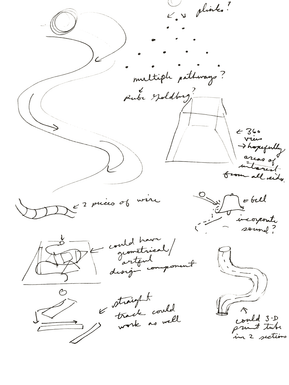 plinko!
multiple pathways?
Rube Goldberg?
360
view
→ hopefully
areas of
interest
from all sides.
2 pieces of wire
bell
incorporate
sound?
could have
geometrical/
artful
design component
straight
track could
work as well
could 3-D
print tube
in 2 sections